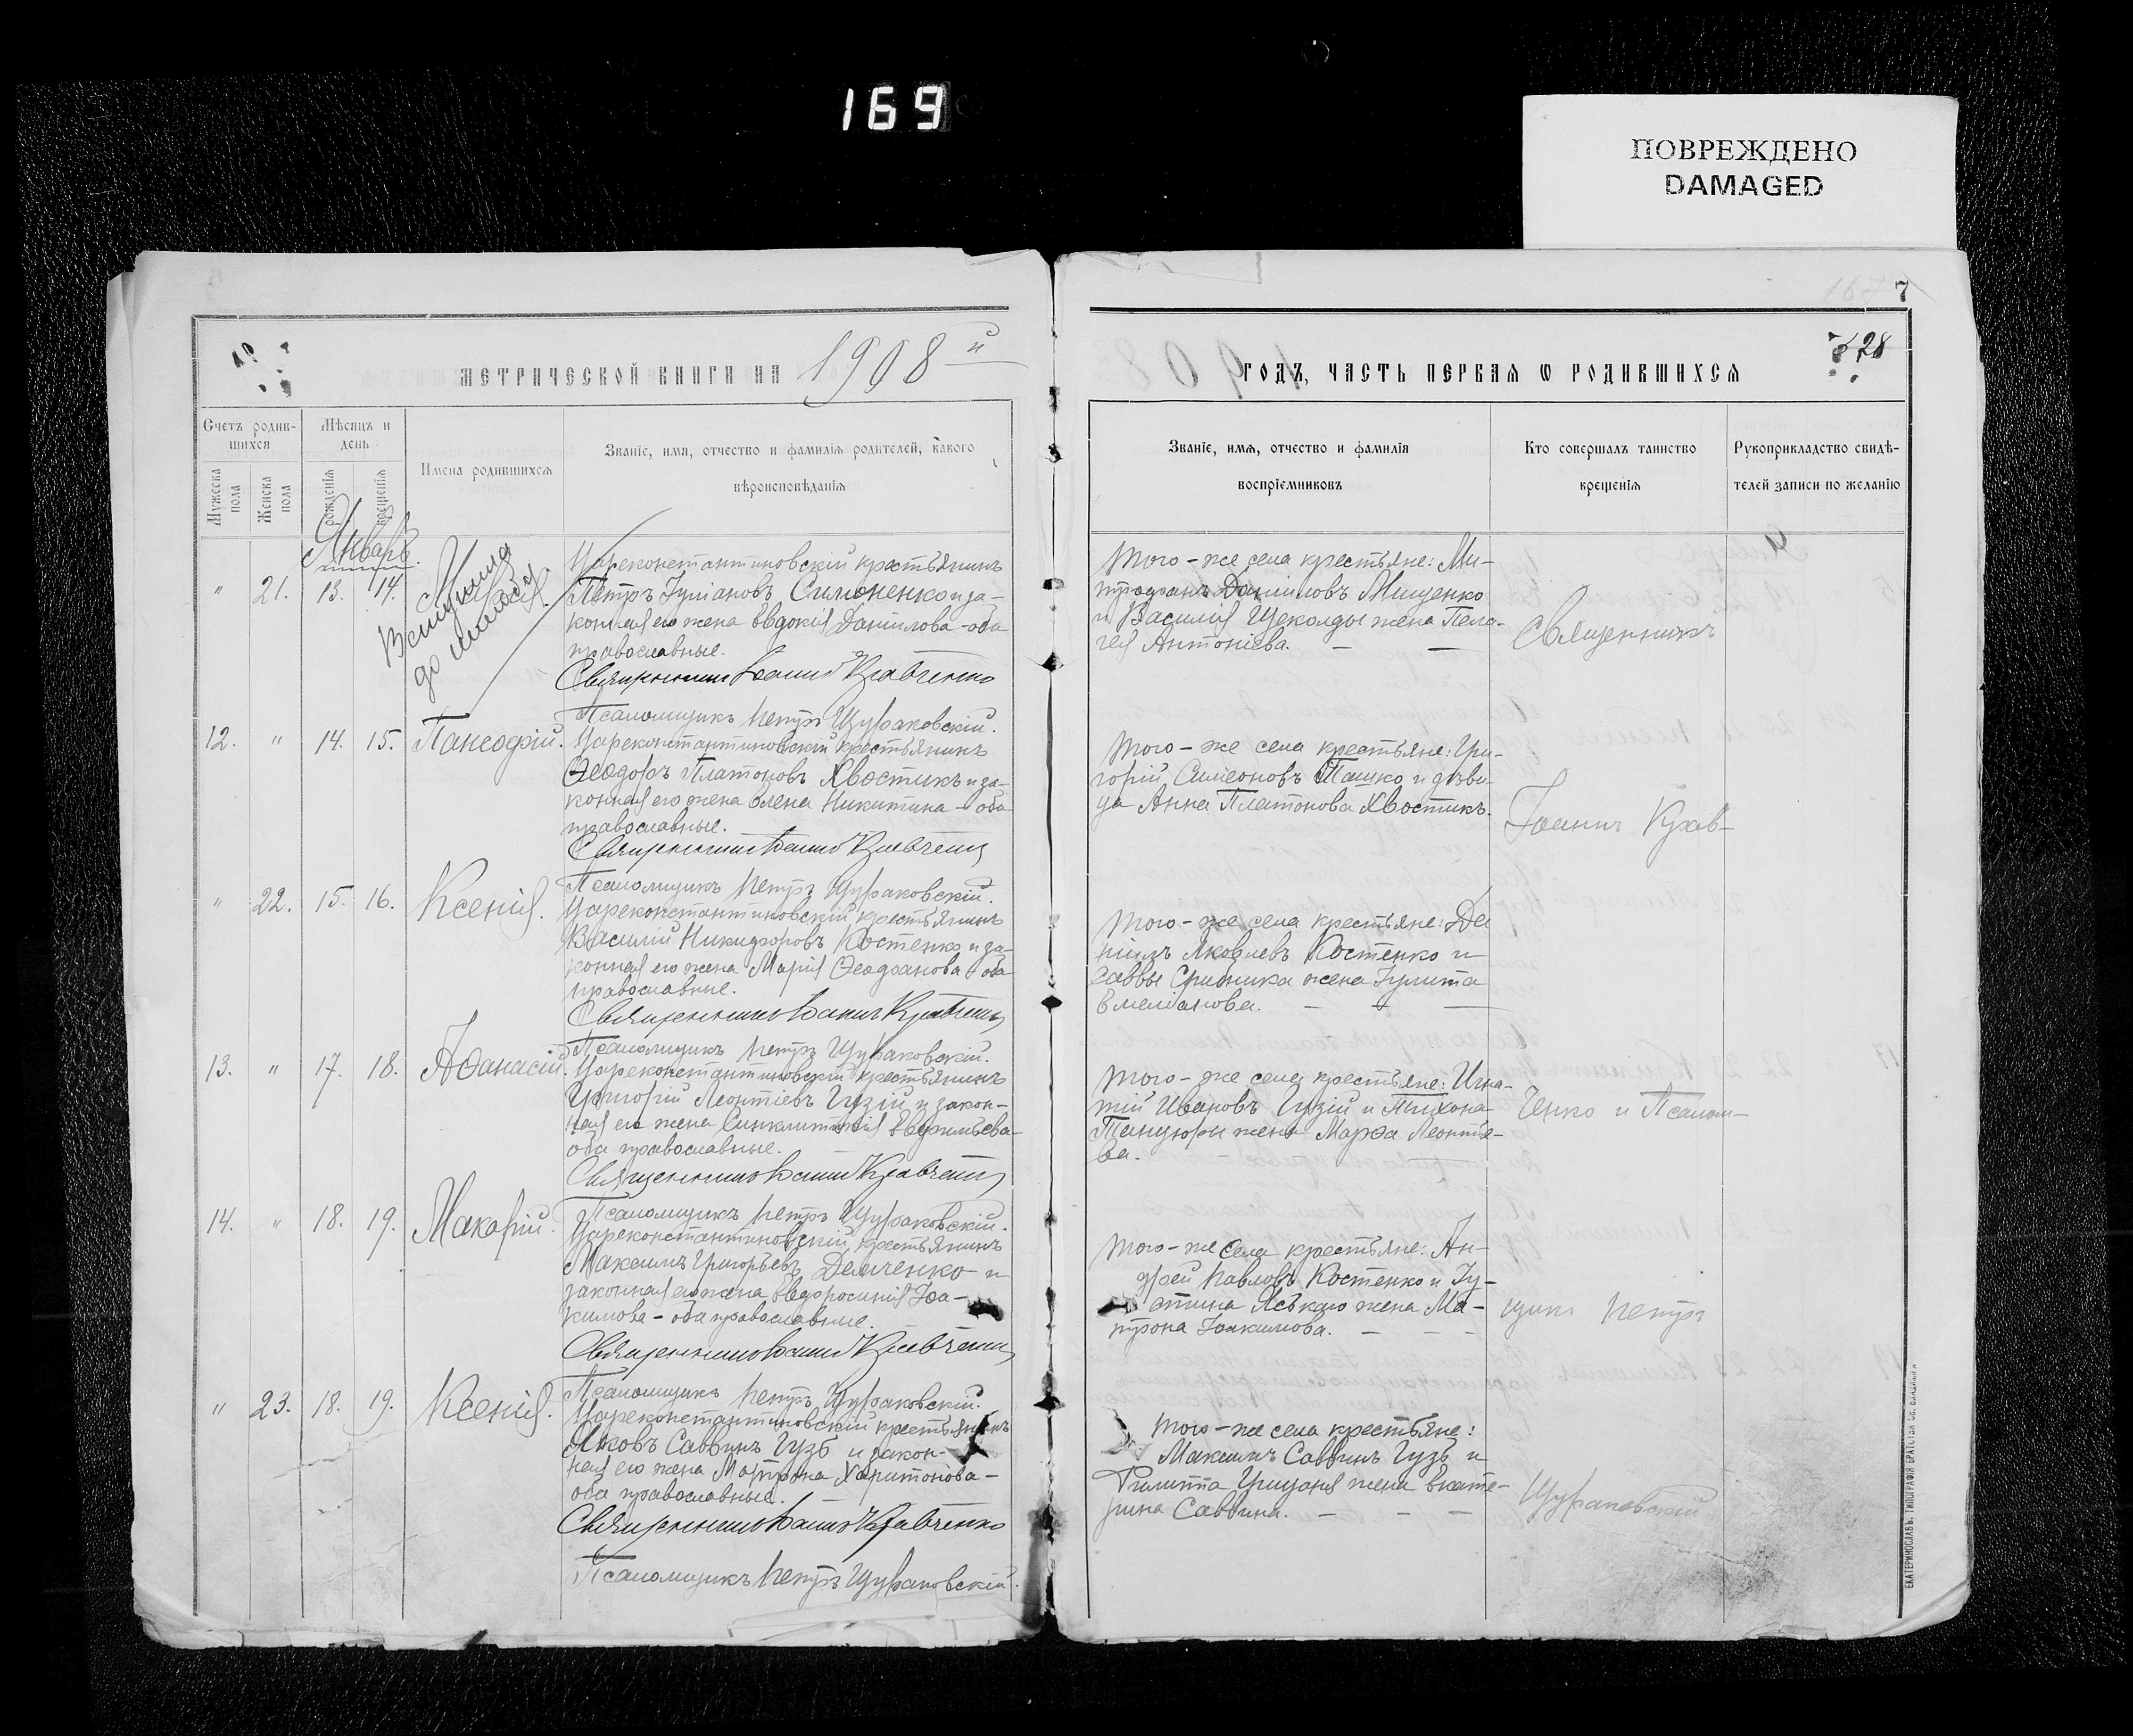 169
ПОВРЕЖДЕНО
DAMAGED
7
28
МЕТРИЧЕСКОЙ КНИГИ НА 1908 й
ГОДЪ, ЧАСТЬ ПЕРВАЯ Ѡ РОДИВШИХСЯ
Счетъ родив-
шихся
Мужеска пола
Женска пола
Мѣсяцъ и
день
рожденія
крещенія
Имена родившихся
Званіе, имя, отчество и фамилія родителей, какого
вѣроисповѣданія
Званіе, имя, отчество и фамилія
воспріемниковъ
Кто совершалъ таинство
крещенія
Рукоприкладство свидѣ-
телей записи по желанію
Январь
" 21. 13. 14.
Цареконстантиновскій крестьянинъ
Петръ Іуліановъ Симоненко и за-
конная его жена Евдокія Даніилова - оба
православные.
Священникъ Іоаннъ Кравченко
Псаломщикъ Петръ Щураковскій.
Того-же села крестьяне: Ми-
трофанъ Даніиловъ Мищенко
и Василія Щеколды жена Пела-
гея Антоніева.
12. " 14. 15. Пансофій.
Цареконстантиновскій крестьянинъ
Ѳеодоръ Платоновъ Хвостикъ и за-
конная его жена Елена Никитина - оба
православные.
Священникъ Іоаннъ Кравченко
Псаломщикъ Петръ Щураковскій.
Того-же села крестьяне: Гри-
горій Симеоновъ Ташко и дѣви-
ца Анна Платонова Хвостикъ.
" 22. 15. 16. Ксенія.
Цареконстантиновскій крестьянинъ
Василій Никифоровъ Костенко и за-
конная его жена Марія Ѳеофанова - оба
православные.
Священникъ Іоаннъ Кравченко
Псаломщикъ Петръ Щураковскій.
Того-же села крестьяне: Да
ніилъ Яковлевъ Костенко и
Саввы жена Іулита
Емеліанова.
13. " 17. 18. Аѳанасій.
Цареконстантиновскій крестьянинъ
Григорій Леонтіевъ Гузій и закон-
ная его жена Синклитикія
оба православные.
Священникъ Іоаннъ Кравченко
Псаломщикъ Петръ Щураковскій.
Того-же села крестьяне: Игна-
тій Ивановъ Гузій и Тихона
Танцюры жена Марѳа Леонтіе-
ва.
14. " 18. 19. Макарій.
Цареконстантиновскій крестьянинъ
Максимъ Григорьевъ Демченко и
законная его жена Евфросинія Іоа-
кимова - оба православные.
Священникъ Іоаннъ Кравченко
Псаломщикъ Петръ Щураковскій.
Того-же села крестьяне: Ан-
дрей Павловъ Костенко и Іу-
стина жена Ма-
трона Іоакимова.
" 23. 18. 19. Ксенія.
Цареконстантиновскій крестьянинъ
Яковъ Саввинъ Гузь и закон-
ная его жена Матрона Харитонова -
оба православные.
Священникъ Іоаннъ Кравченко
Псаломщикъ Петръ Щураковскій.
Того-же села крестьяне:
Максимъ Саввинъ Гузь и
Филиппа жена Екате-
рина Саввина.
Священникъ
Іоаннъ Крав-
ченко и Псалом-
щикъ Петръ
Щураковскій
ЕКАТЕРИНОСЛАВЪ. ТИПОГРАФІЯ БРАТСТВА СВ. ВЛАДИМІРА